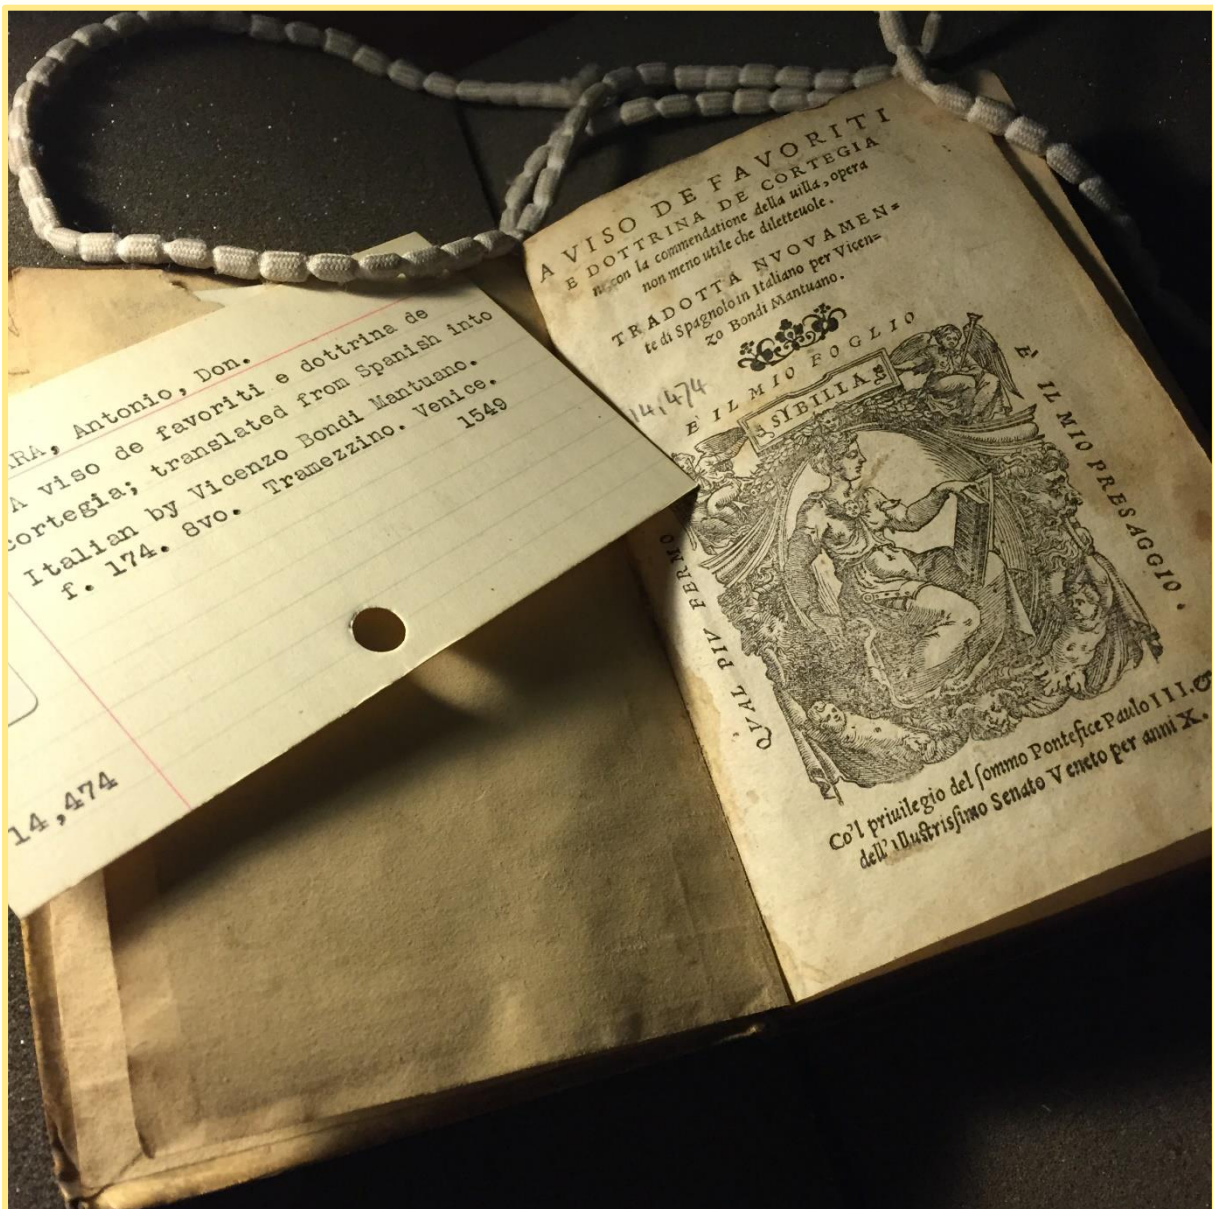 RA, Antonio, Don.
A viso de favoriti e dottrina de
cortegia; translated from Spanish into
Italian by Vicenzo Bondi Mantuano.
f. 174. 8vo. Tramezzino. Venice.
1549
14,474
A VISO DE FAVORITI
E DOTTRINA DE CORTEGIA
ni con la commendatione della uilla, opera
non meno utile che diletteuole.
TRADOTTA NVOVAMEN=
te di Spagnolo in Italiano per Vicen=
zo Bondi Mantuano.
14,474
QVAL PIV FERMO
E IL MIO FOGLIO
È IL MIO PRESAGGIO.
SIBILLA
Co'l priuilegio del ſommo Pontefice Paulo III. &
dell'illuſtriſſimo Senato Veneto per anni X.